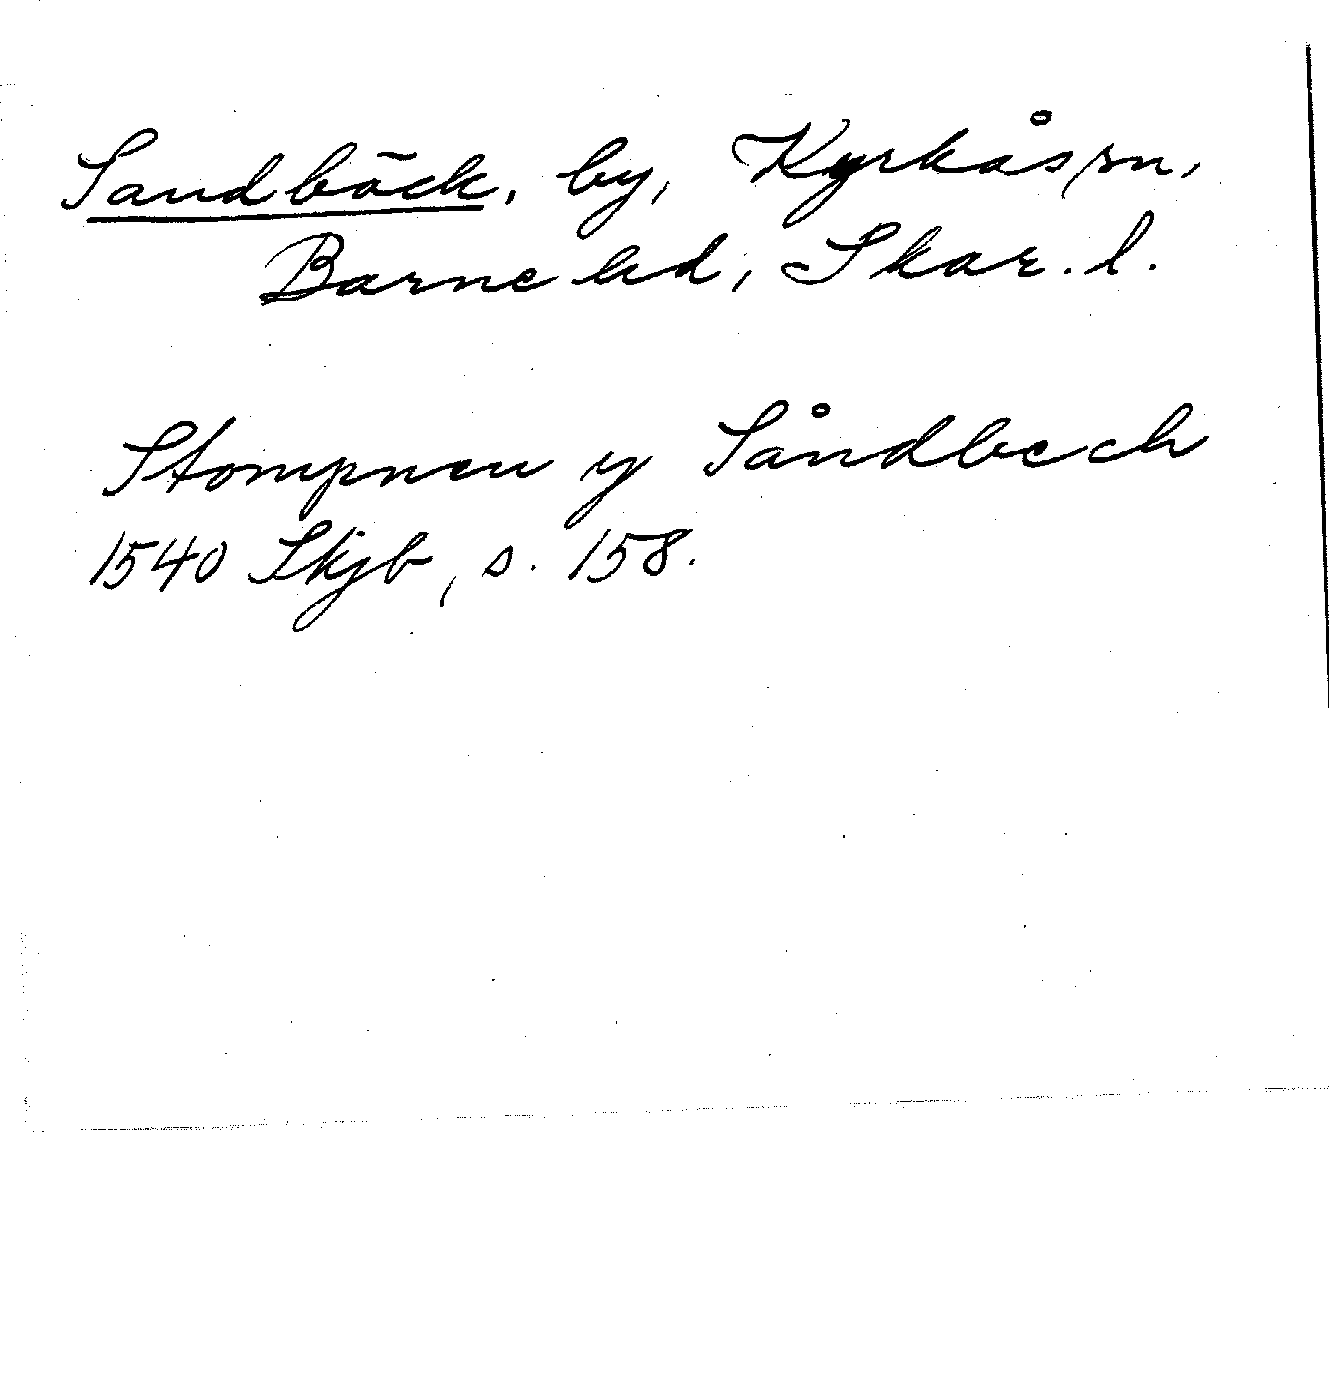 Sandbäck, by, Kyrkås sn,
Barne hd, Skar. l.
Stompnen y Såndbech
1540 Skjb, s. 158.